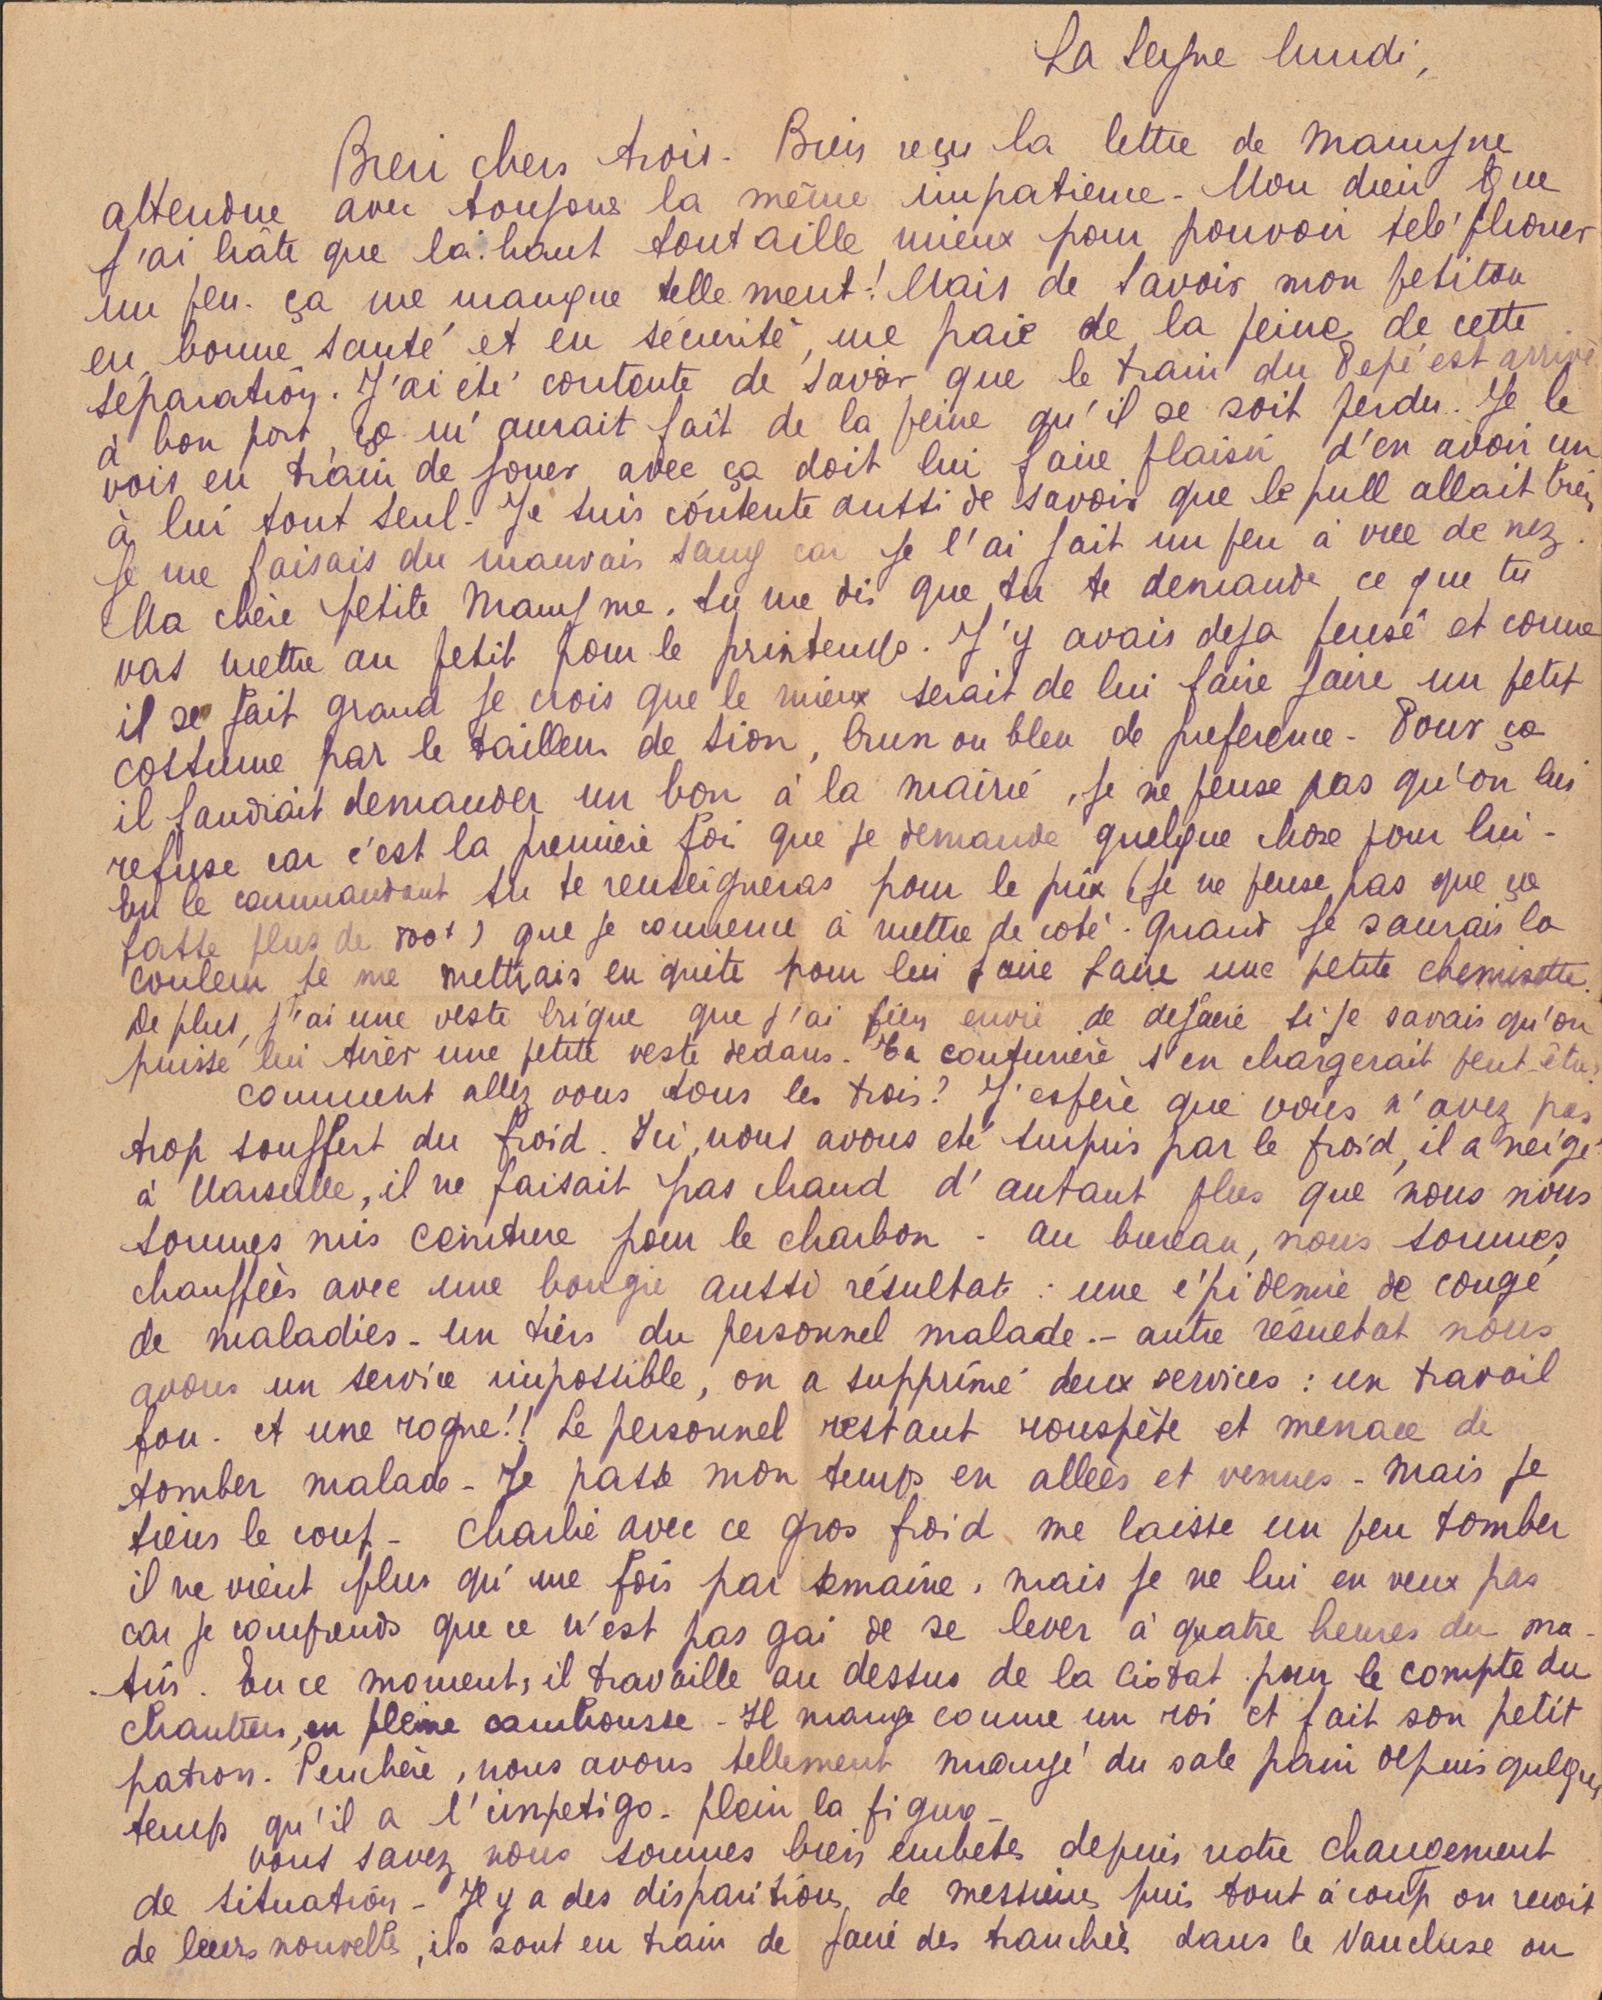 La Seyne lundi,
Bien chers trois. Bien reçu la lettre de Mamyne
attendue avec toujours la même impatience. Mon dieu que
j'ai hâte que là haut tout aille mieux pour pouvoir téléphoner
un peu. ça me manque tellement! Mais de savoir mon petitou
en bonne santé et en sécurité, me paie de la peine de cette
séparation. J'ai été contente de savoir que le train du Pépé est arrivé
à bon port, ça m'aurait fait de la peine qu'il se soit perdu. Je le
vois en train de jouer avec ça doit lui faire plaisir d'en avoir un
à lui tout seul. Je suis contente aussi de savoir que le pull allait bien
Je me faisais du mauvais sang car je l'ai fait un peu à vue de nez.
Ma chère petite Mamyne. tu me dis que tu te demande ce que tu
vas mettre au petit pour le printemps. J'y avais deja pensé et comme
il se fait grand je crois que le mieux serait de lui faire faire un petit
costume par le tailleur de Sion, brun ou bleu de preference. Pour ça
il faudrait demander un bon à la mairie, je ne pense pas qu'on lui
refuse car c'est la première foi que je demande quelque chose pour lui.
En le commandant tu te renseigneras pour le prix (je ne pense pas que ça
fasse plus de ) que je commence à mettre de coté. Quand je saurais la
couleur je me mettrais en quete pour lui faire faire une petite chemisette.
De plus, j'ai une veste brique que j'ai bien envie de defaire si je savais qu'on
puisse lui tirer une petite veste dedans. La couturière s'en chargerait peut-être?
Comment allez vous tous les trois? J'espère que vous n'avez pas
trop souffert du froid. Ici, nous avons été surpris par le froid, il a neigé
à Marseille, il ne faisait pas chaud d'autant plus que nous nous
sommes mis ceinture pour le charbon - au bureau, nous sommes
chauffées avec une bougie aussi résultat : une épidemie de congé
de maladies - un tiers du personnel malade. - autre résultat nous
avons un service impossible, on a supprimé deux services : un travail
fou. et une rogne!! Le personnel restant rouspète et menace de
tomber malade - Je passe mon temps en allées et venues - mais je
tiens le coup - Charlie avec ce gros froid me laisse un peu tomber
il ne vient plus qu'une fois par semaine, mais je ne lui en veux pas
car je comprends que ce n'est pas gai de se lever à quatre heures du ma-
tin. En ce moment, il travaille au dessus de la Ciotat pour le compte du
chantier, en pleine cambrousse - Il mange comme un roi et fait son petit
patron. Peuchère, nous avons tellement mangé du sale pain depuis quelques
temps qu'il a l'impetigo - plein la figure -
vous savez nous sommes bien embêtés depuis notre changement
de situation - Il y a des disparitions de messieurs puis tout à coup on reçoit
de leurs nouvelles, ils sont en train de faire des tranchées dans le Vaucluse ou